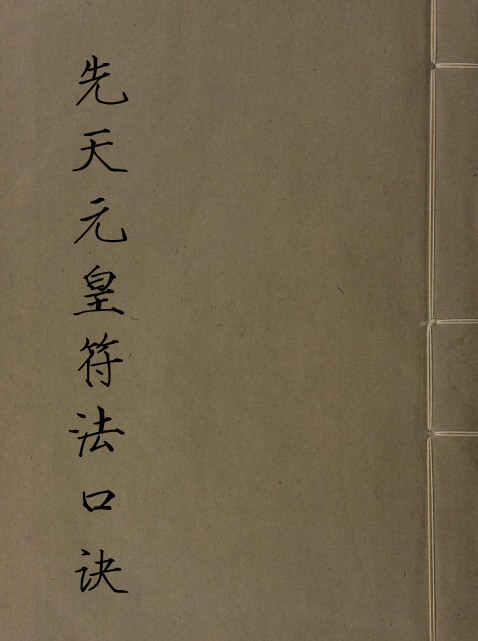 先天元皇符法口诀